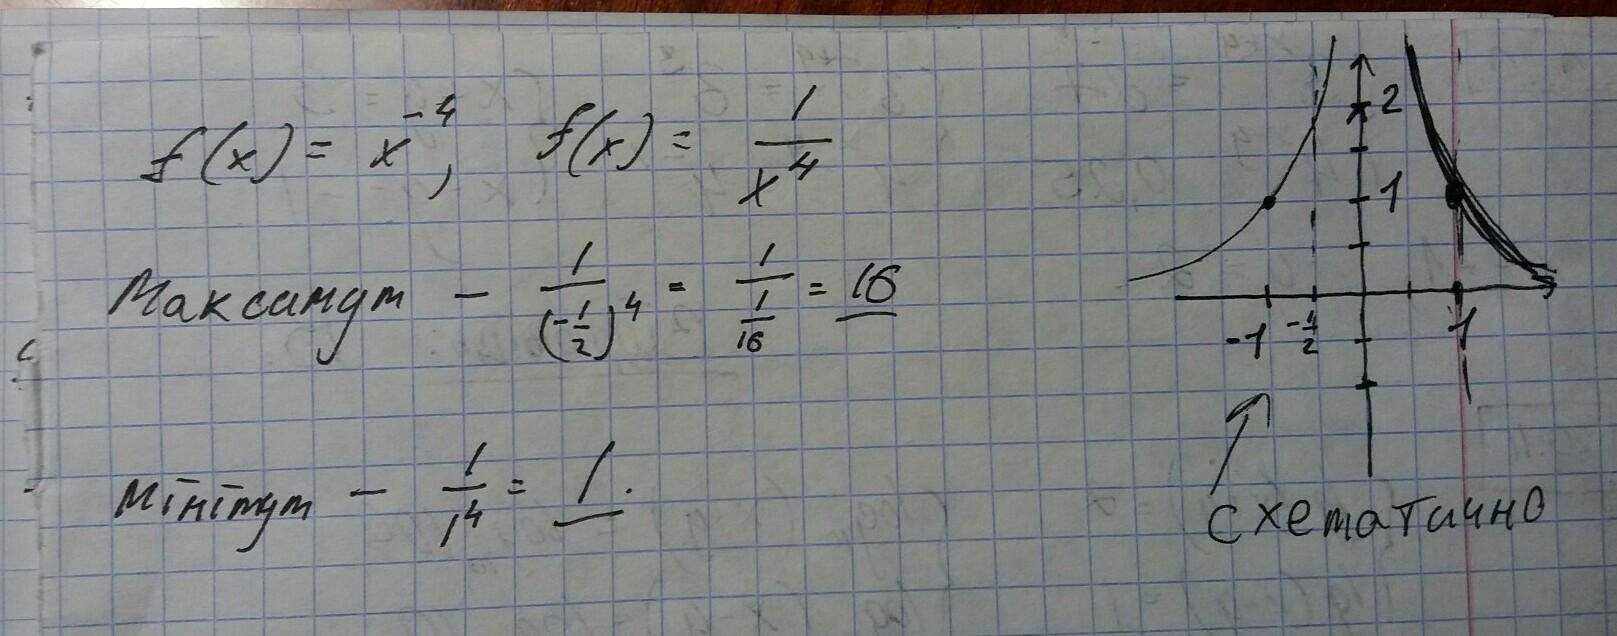 f(x) = x⁻⁴, f(x) = 1/x⁴
Максимум – 1/(-1/2)⁴ = 1/(1/16) = 16
Мінімум – 1/1⁴ = 1.
2
1
-1 -1/2 1
схематично